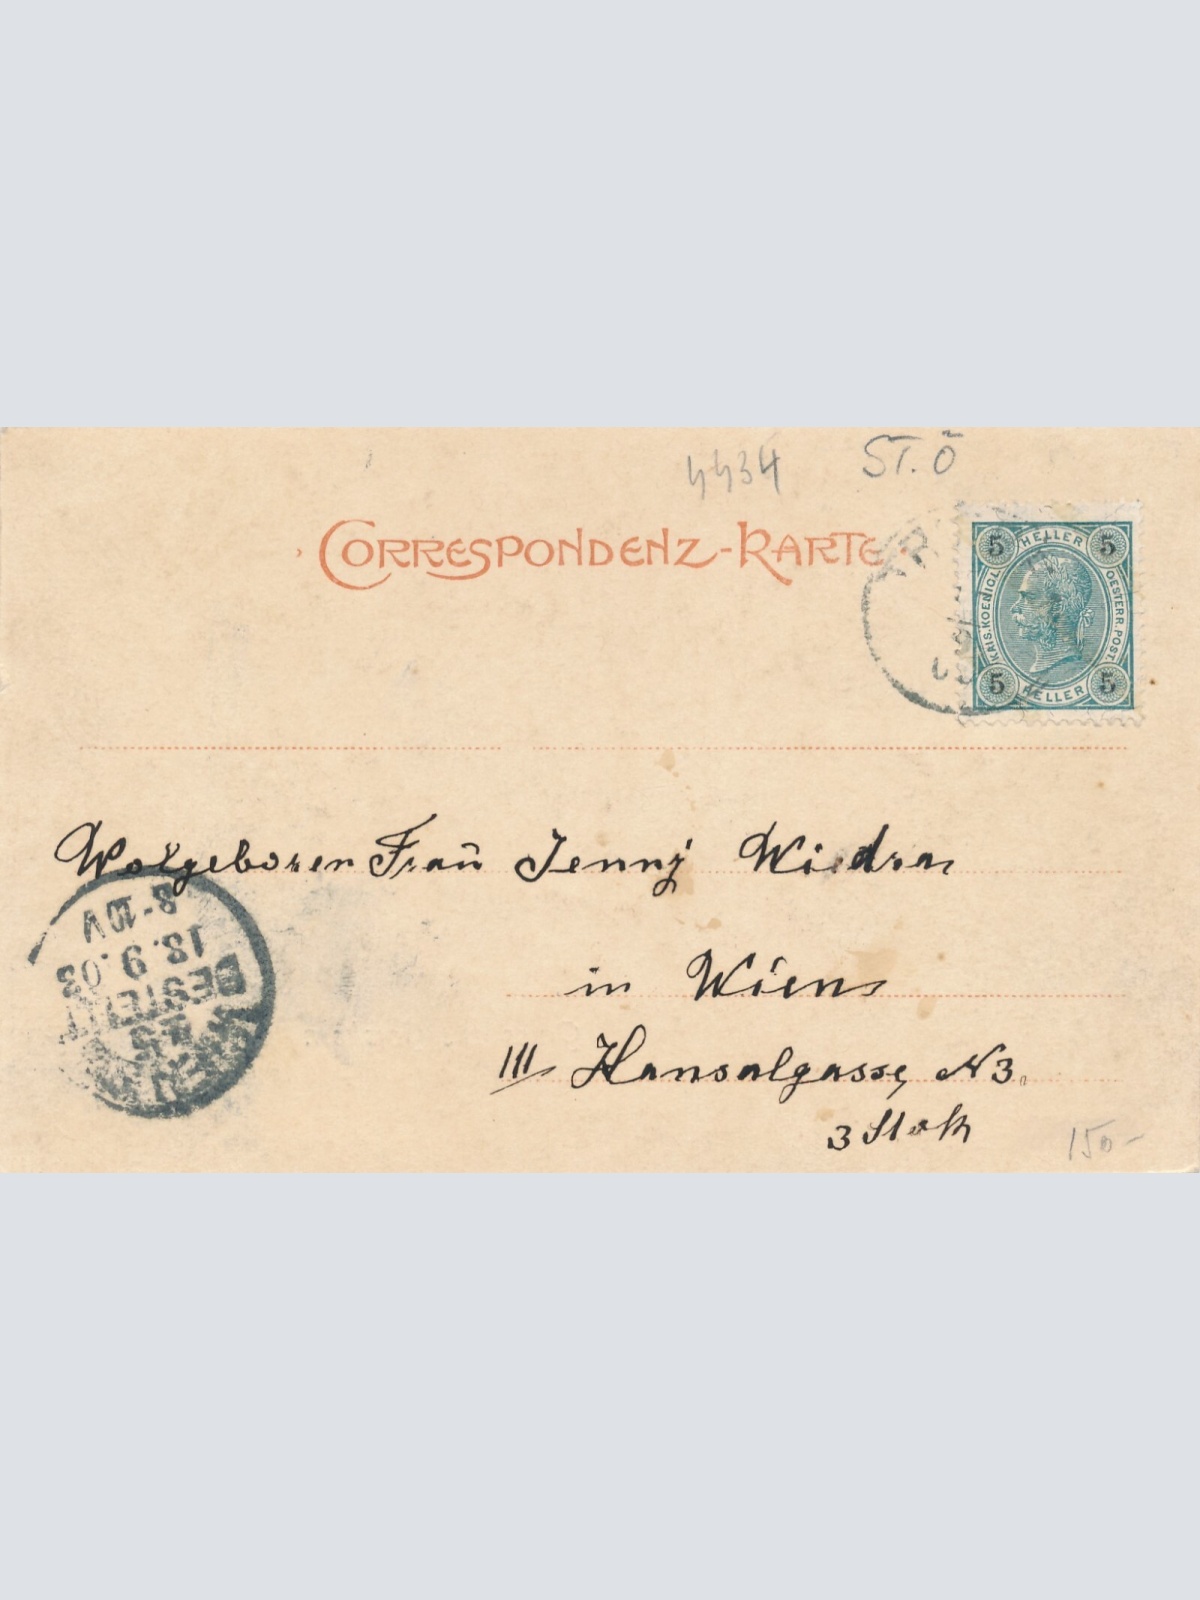 4434 ST. Ö
CORRESPONDENZ-KARTE
5 HELLER 5
KAIS. KOENIGL. OESTERR. POST.
5 HELLER 5
Wolgeboren Fraŭ Jenny Wiedra
in Wien
III Hansalgasse, N 3.
3 Stok
150-
8-10V
18.9.03
BESTELLT
WIEN